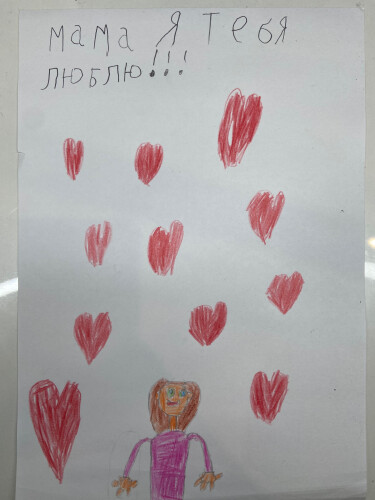 мама я тебя
люблю!!!